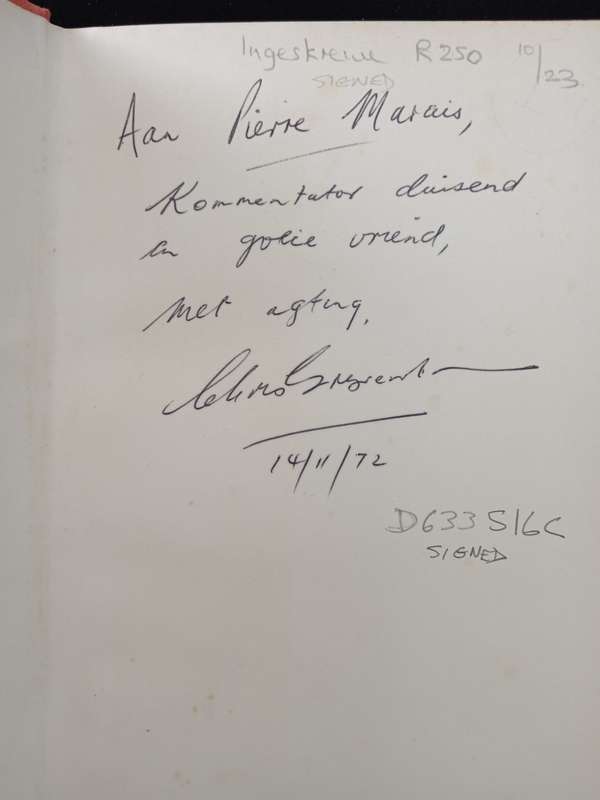 Ingeskrewe R250 10/23
SIGNED
Aan Pierre Marais,
Kommentator duisend
en goeie vriend,
Met agting,
14/11/72
D633 S16C
SIGNED